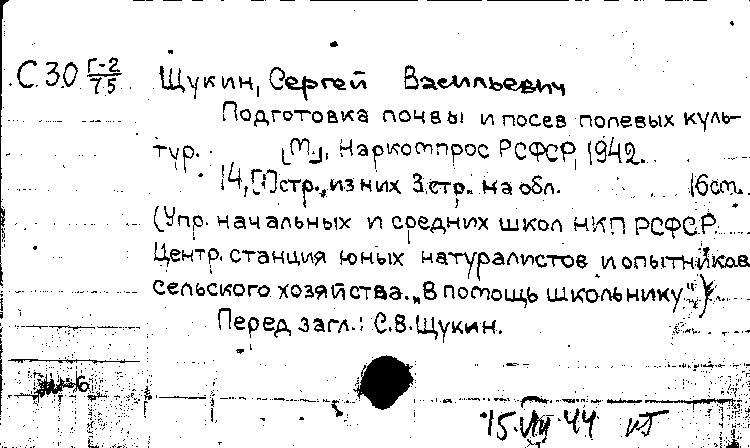 С30 Г-2/75 Щукин, Сергей Васильевич
Подготовка почвы и посев полевых куль-
тур. [М.], Наркомпрос РСФСР, 1942.
14, [1] стр., из них 3 стр. на обл. 16 см.
(Упр. начальных и средних школ НКП РСФСР.
Центр. станция юных натуралистов и опытников
сельского хозяйства. „В помощь школьнику")
Перед загл.: С.В. Щукин.
15.VIII 44